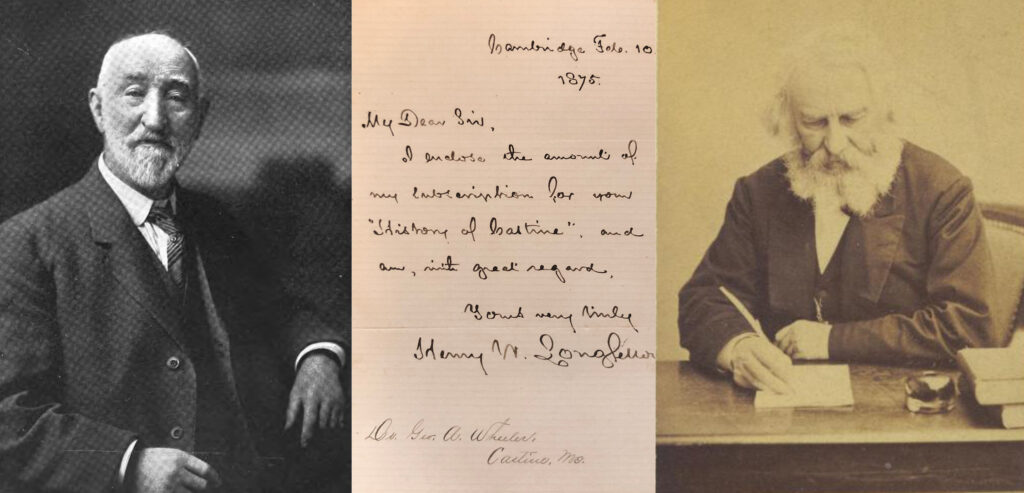 Cambridge Feb. 10
1875.
My Dear Sir,
I enclose the amount of
my subscription for your
"History of Castine", and
am, with great regard,
Yours very truly
Henry W. Longfellow
Dr. Geo. A. Wheeler,
Castine, Me.